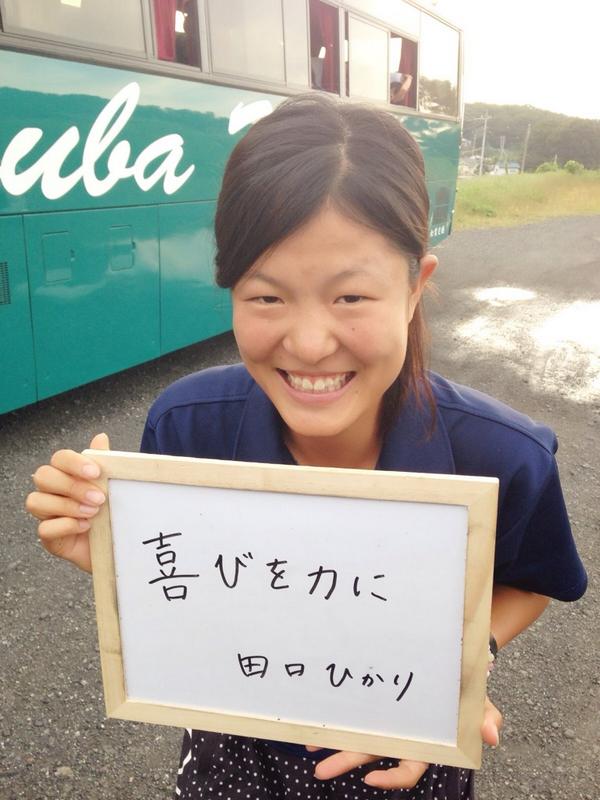 uba
喜びを力に
田口ひかり